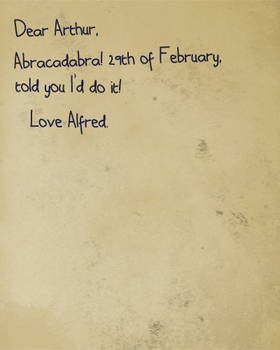 Dear Arthur,
Abracadabra! 29th of February,
told you I'd do it!
Love Alfred.